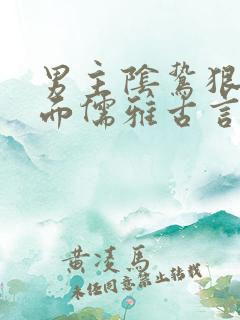 男主陰鷙狠
而儒雅古言
黄凌馬
未经同意禁止转载